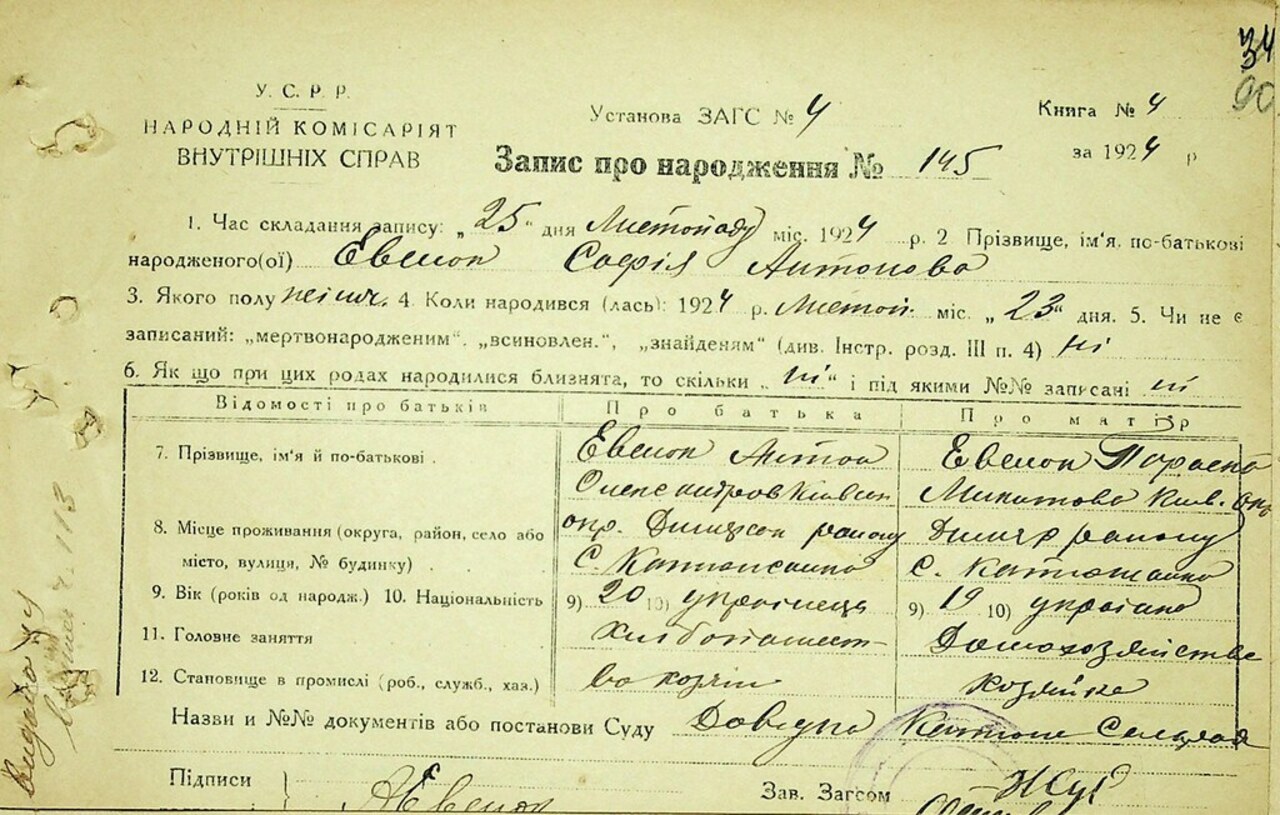 34
90
У. С. Р. Р.
НАРОДНІЙ КОМІСАРІЯТ
ВНУТРІШНІХ СПРАВ
Установа ЗАГС № 4
Книга № 4
за 1924 р
Запис про народження № 145
1. Час складання запису: „25“ дня Листопаду міс. 1924 р. 2. Прізвище, ім'я, по-батькові
народженого(ої) Евенок Софія Антонова
3. Якого полу жіноч. 4. Коли народився (лась): 1924 р. Листоп. міс. „23“ дня. 5. Чи не є
записаний: „мертвонародженим“. „всиновлен.“, „знайденям“ (див. Інстр. розд. III п. 4) ні
6. Як що при цих родах народилися близнята, то скільки „ні“ і під якими №№ записані ні
Відомості про батьків Про батька Про матір
7. Прізвище, ім'я й по-батькові . Евенок Антон Евенок Параска
Олександров Микитова Київ. окр.
8. Місце проживання (округа, район, село або окр. Димерск району Димер району
місто, вулиця, № будинку) . . С. Катюжанка с. Катюжанка
9. Вік (років од народж.) 10. Національність 9) 20 10) украінець 9) 19 10) украінка
11. Головне заняття хліборобст Домохозяйство
12. Становище в промислі (роб., служб., хаз.) хозяйка
Назви и №№ документів або постанови Суду Довідка Катюж Сільрад
Підписи АЕвенок Зав. Загсом